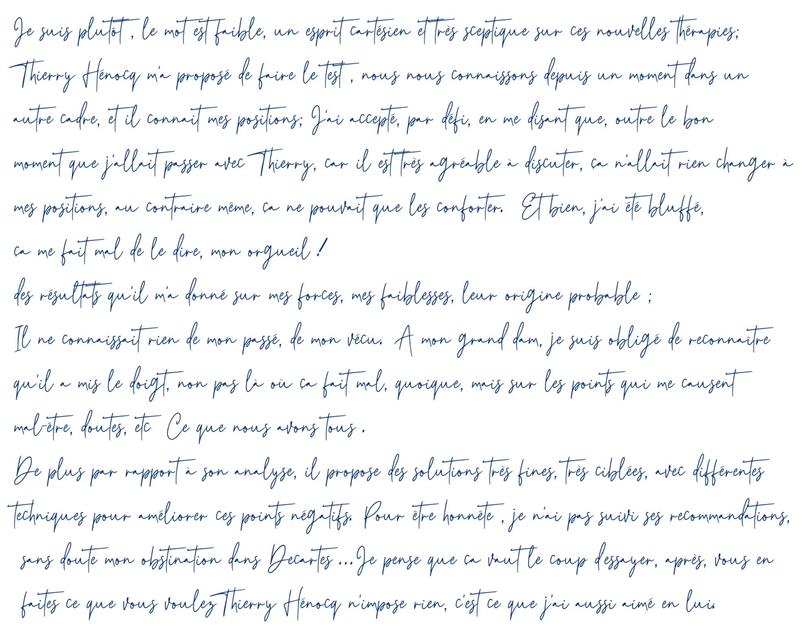 Je suis plutôt , le mot est faible, un esprit cartésien et très sceptique sur ces nouvelles thérapies;
Thierry Hénocq m'a proposé de faire le test , nous nous connaissons depuis un moment dans un
autre cadre, et il connait mes positions; J'ai accepté, par défi, en me disant que, outre le bon
moment que j'allait passer avec Thierry, car il est très agréable à discuter, ca n'allait rien changer à
mes positions, au contraire même, ca ne pouvait que les conforter. Et bien, j'ai été bluffé,
ca me fait mal de le dire, mon orgueil !
des résultats qu'il m'a donné sur mes forces, mes faiblesses, leur origine probable ;
Il ne connaissait rien de mon passé, de mon vécu. A mon grand dam, je suis obligé de reconnaitre
qu'il a mis le doigt, non pas là où ca fait mal, quoique, mais sur les points qui me causent
mal-être, doutes, etc Ce que nous avons tous .
De plus par rapport à son analyse, il propose des solutions très fines, très ciblées, avec différentes
techniques pour améliorer ces points négatifs. Pour être honnête , je n'ai pas suivi ses recommandations,
sans doute mon obstination dans Decartes ... Je pense que ca vaut le coup d'essayer, après, vous en
faites ce que vous voulez Thierry Hénocq n'impose rien, c'est ce que j'ai aussi aimé en lui.